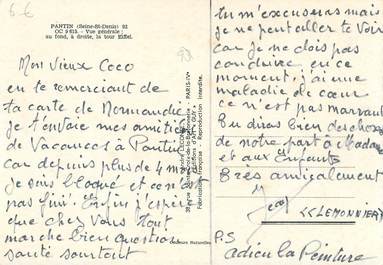 6-6
PANTIN (Seine-St-Denis) 93
OC 9 613. - Vue générale ;
au fond, à droite, la tour Eiffel.
93
Mon Vieux Coco
en te remerciant de
ta carte de Normandie
je t'envoie mes amitiés
de Vacances à Pantin
car depuis plus de 4 mois
je suis bloqué et ce n'est
pas fini. Enfin j'espère
que chez Vous tout
marche bien question
santé surtout
tu m'excuseras mais
je ne peut aller te Voir
car je ne dois pas
conduire, en ce
moment, j'ai une
maladie de cœur
ce n'est pas marrant
Tu diras bien des choses
de notre part à Madame
et aux Enfants
Très amicalement
Jean
(LEMONNIER)
P.S
adieu la Peinture
PARIS-IVe
Fabrication Française - Reproduction interdite.
Couleurs Naturelles